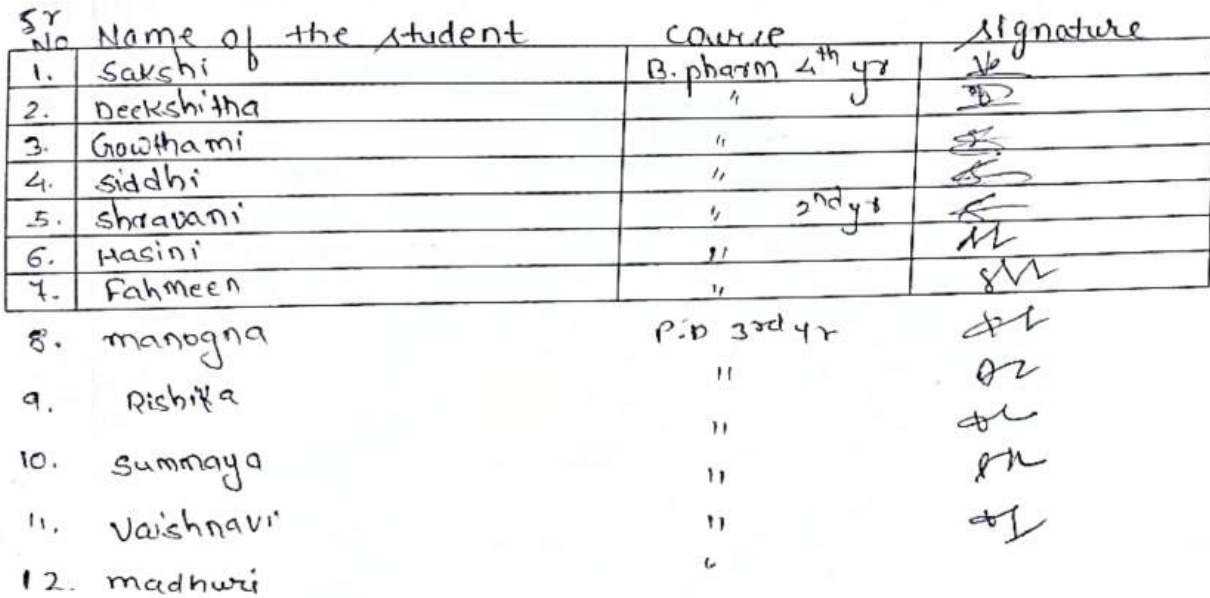 Sr No Name of the student course signature
1. Sakshi B. pharm 4th yr
2. Deekshitha "
3. Gowthami "
4. siddhi "
5. shravani " 2nd yr
6. Hasini "
7. Fahmeen "
8. manogna P.D 3rd yr
9. Rishika "
10. Summaya "
11. Vaishnavi "
12. madhuri "
"